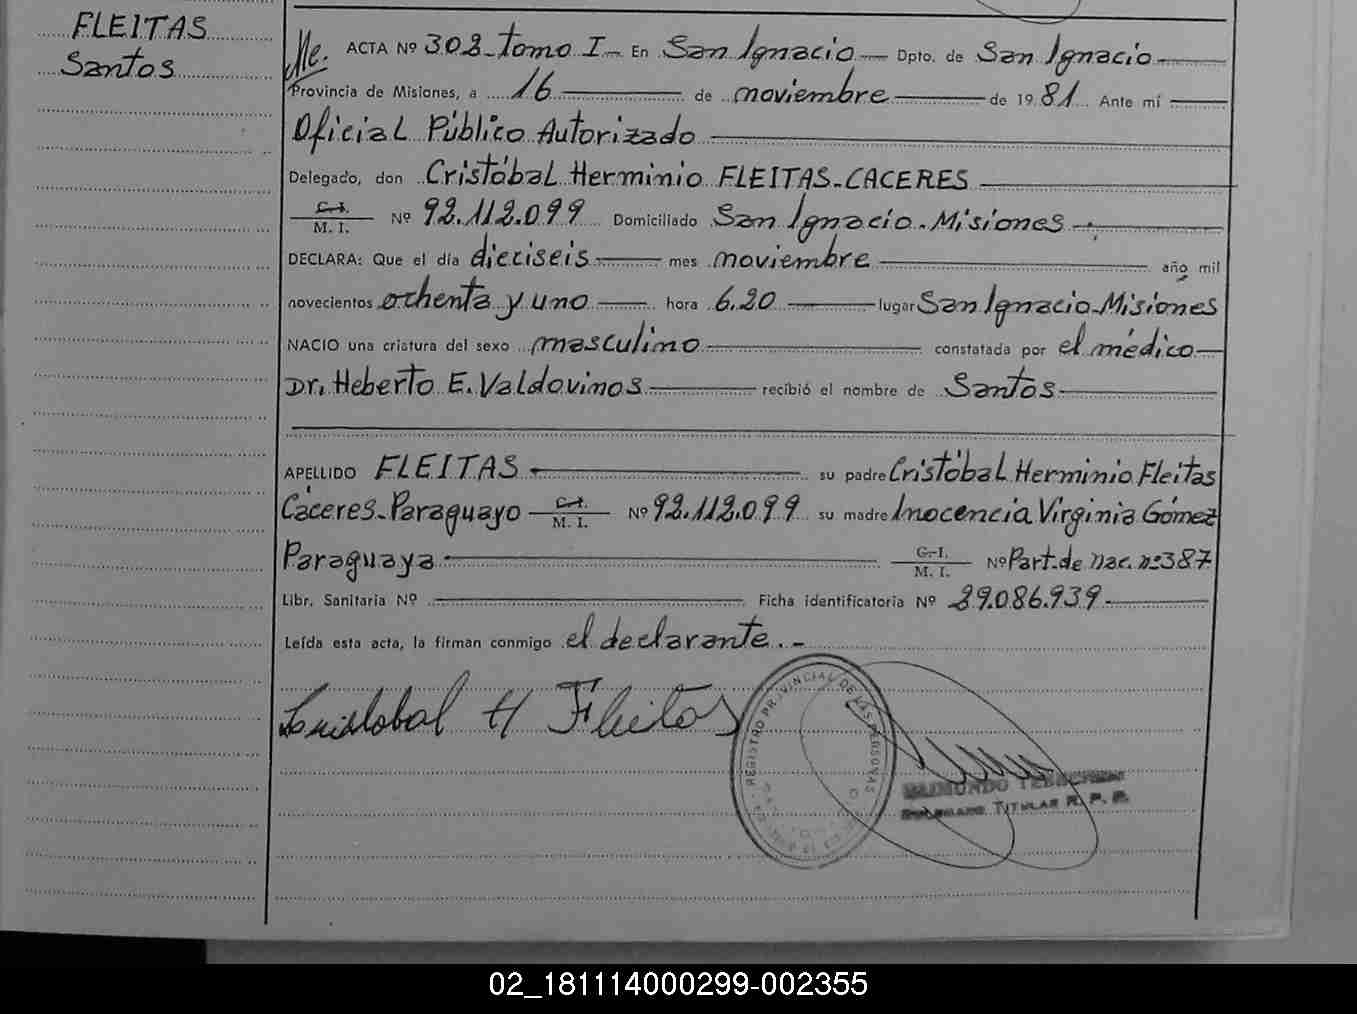 FLEITAS
Santos
Me. ACTA Nº 302-Tomo I- En San Ignacio- Dpto. de San Ignacio
Provincia de Misiones, a 16 de noviembre de 1981 Ante mí
Oficial Público Autorizado
Delegado, don Cristóbal Herminio FLEITAS-CACERES
C. I.
M. I. Nº 92.112.099 Domiciliado San Ignacio-Misiones
DECLARA: Que el día dieciseis mes noviembre año mil
novecientos ochenta y uno hora 6.20 lugar San Ignacio-Misiones
NACIO una criatura del sexo masculino constatada por el médico
Dr. Heberto E. Valdovinos recibió el nombre de Santos
APELLIDO FLEITAS su padre Cristóbal Herminio Fleitas
Cáceres-Paraguayo C. I. M. I. Nº 92.112.099 su madre Inocencia Virginia Gómez
Paraguaya C. I. M. I. Nº Part. de nac. nº 387
Libr. Sanitaria Nº Ficha identificatoria Nº 29.086.939
Leída esta acta, la firman conmigo el declarante.-
Cristobal H Fleitas
REGISTRO PROVINCIAL DE LAS PERSONAS
RAIMUNDO
DELEGADO TITULAR R. P. P.
02_181114000299-002355